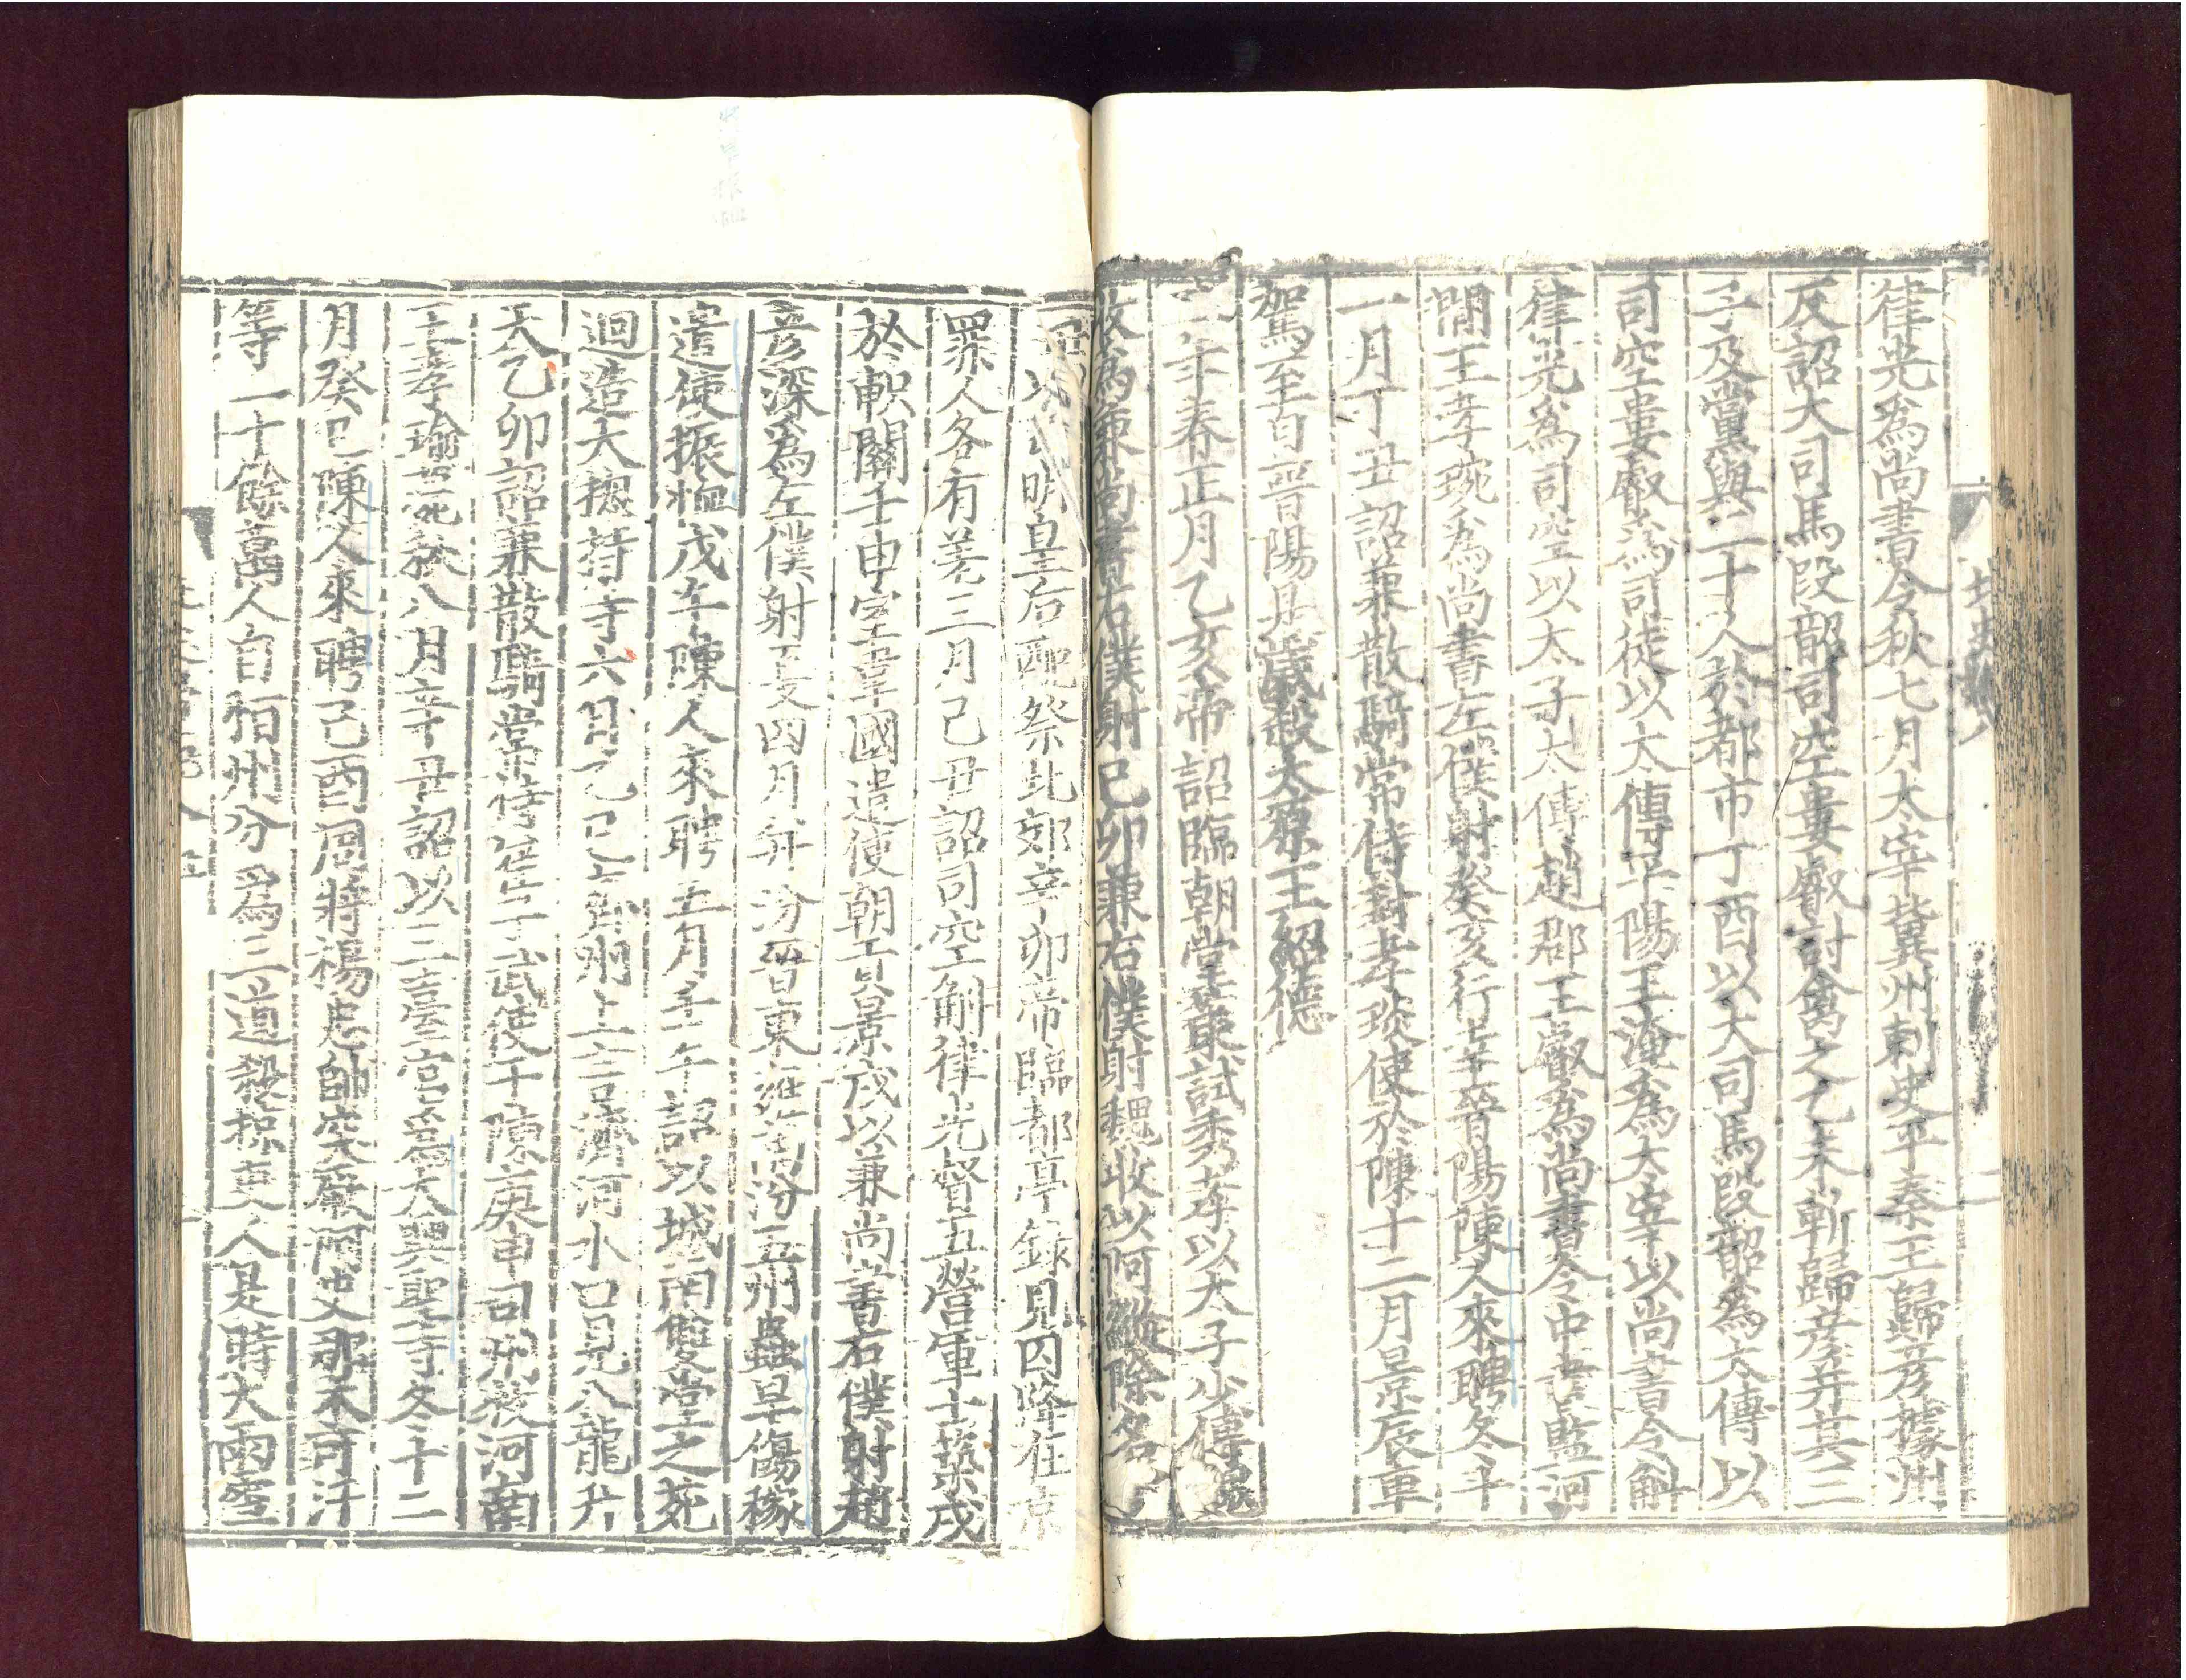 律光爲尚書令秋七月太宰冀州刺史平秦王歸彦據州
反詔大司馬段韶司空婁叡討禽之乙未斬歸彦并其三
子及黨與二十人於都市丁酉以大司馬段韶爲太傅以
司空婁叡爲司徒以太傅平陽王淹爲太宰以尚書令斛
律光爲司空以太子太傅趙郡王叡爲尚書令中書監河
間王孝琬爲尚書左僕射癸亥行幸晉陽陳人來聘冬十
一月丁丑詔兼散騎常侍封孝琰使於陳十二月景辰車
駕至自晉陽是歲殺太原王紹德
二年春正月乙亥帝詔臨朝堂策試秀孝以太子少傅魏
收爲兼尚書右僕射己卯兼右僕射魏收以阿縱除名
明皇后配祭北郊辛卯帝臨都亭錄見囚降在京
罪人各有差三月己丑詔司空斛律光督五營軍士築戍
於軹關壬申室韋國遣使朝貢景戌以兼尚書右僕射趙
彦深爲左僕射夏四月并汾晉東雍南汾五州蟲旱傷稼
遣使振恤戊午陳人來聘五月壬午詔以城南雙堂之苑
迴造大揔持寺六月乙巳齊州上言濟河水口見八龍升
天乙卯詔兼散騎常侍崔子武使于陳庚申司州牧河南
王孝瑜薨秋八月辛丑詔以三臺宮爲大興聖寺冬十二
月癸巳陳人來聘己酉周將楊忠帥突厥阿史那木可汗
等二十餘萬人自恒州分爲三道殺掠吏人是時大雨雪